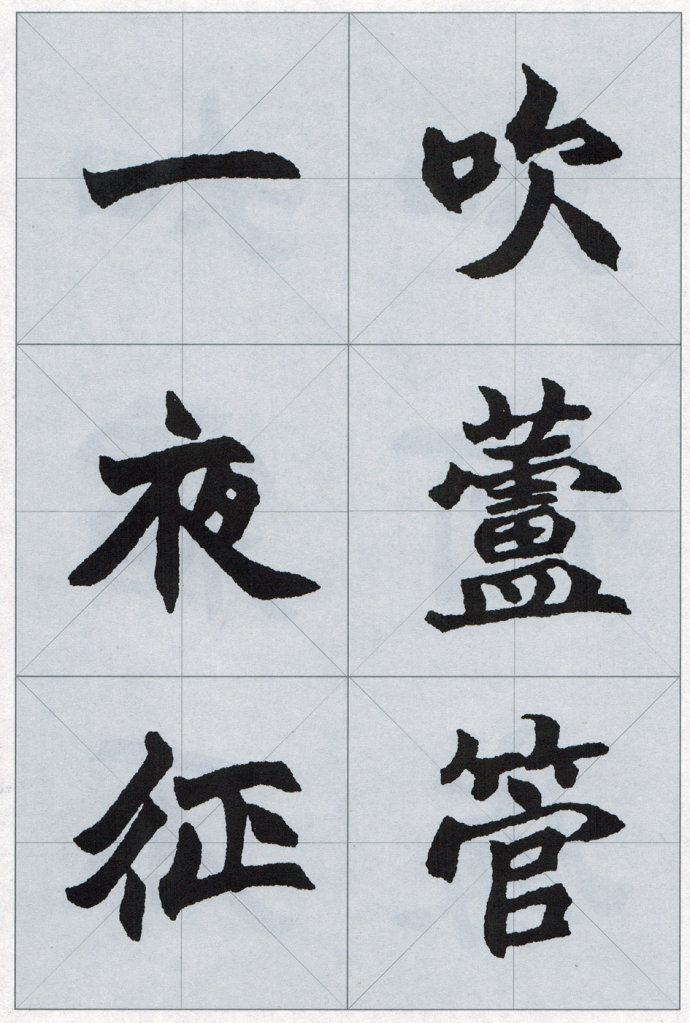 吹蘆管
一夜征